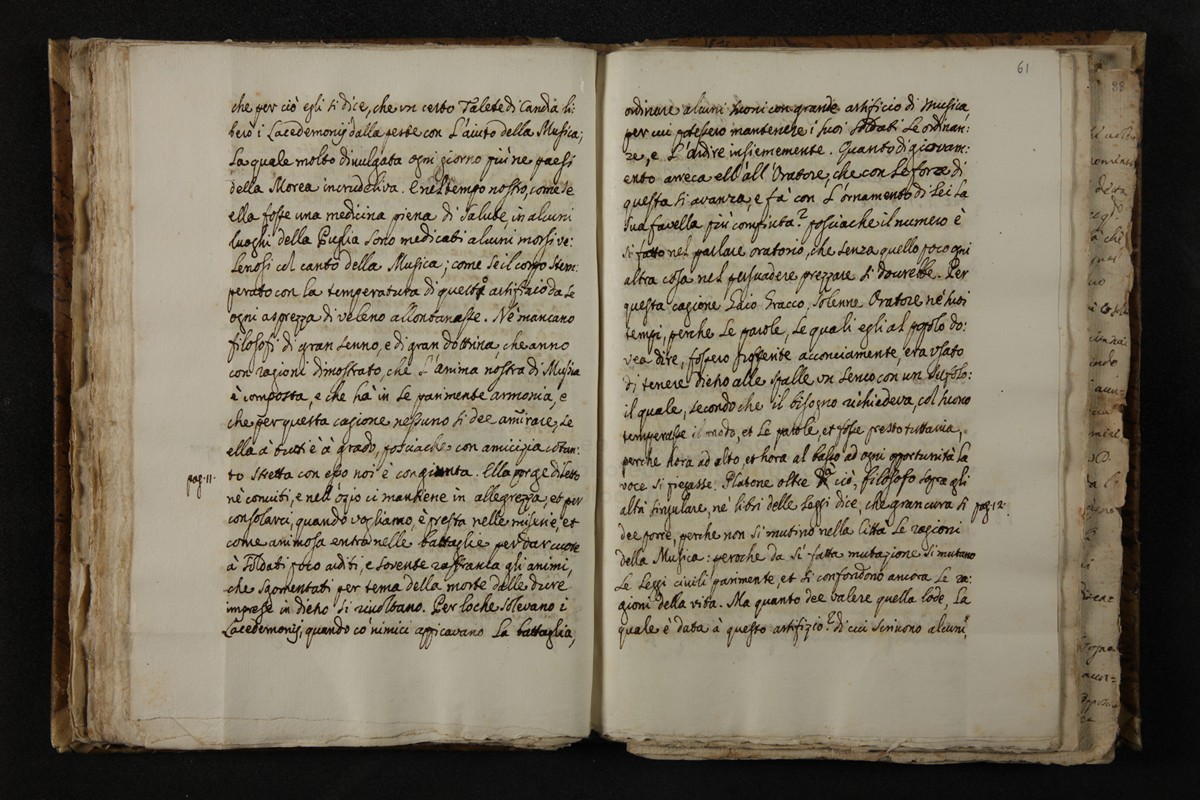 che per ciò egli si dice, che un certo Talete di Candia li:
berò i Lacedemonij dalla peste con l'aiuto della Musica;
la quale molto divulgata ogni giorno più ne paesi
della Morea incrudeliva. E nel tempo nostro, come se
ella fosse una medicina piena di salute in alcuni
luoghi della Puglia sono medicati alcuni morsi ve:
lenosi col canto della Musica; come se il corpo stem:
perato con la temperatura di questo artifizio da se
ogni asprezza di veleno allontanasse. Nè mancano
filosofi di gran senno, e di gran dottrina, che anno
con ragioni dimostrato, che l'anima nostra di Musica
è composta, e che hà in se parimente armonia, e
che per questa cagione nessuno si dee amirare, se
ella à tutti è à grado, posciache con amicizia cotan:
to stretta con esso noi è congiunta. Ella porge diletto
pag. 11.
ne conviti, e nell'ozio ci mantiene in allegrezza, et per
consolarci, quando vogliamo, è presta nelle miserie, et
come animosa entra nelle battaglie per dar cuore
à soldati poco arditi, e sovente raffranca gli animi,
che sgomentati per tema della morte dalle dure
imprese in dietro si rivoltano. Per loche solevano i
Lacedemonij, quando co' nimici appicavano la battaglia,
61
ordinare alcuni suoni con grande artificio di musica,
per cui potessero mantenere i suoi soldati le ordinan:
ze, e l'ardire insiememente. Quanto di giovam:
ento arreca ell' all'Oratore, che con le forze di
questa si avanza, e fà con l'ornamento di lei la
sua favella più compiuta? posciache il numero è
sì fatto nel parlare oratorio, che senza quello poco ogni
altra cosa nel persuadere prezzare si dourebbe. Per
questa cagione Gaio Gracco, solenne Oratore ne' suoi
tempi, perche le parole, le quali egli al popolo do:
vea dire, fossero proferite acconciamente, era usato
di tenere dietro alle spalle un servo con un zufolo:
il quale, secondo che il bisogno richiedeva, col suono
temperasse il modo, et le parole, et fosse presto tuttavia,
perche hora ad alto, et hora al basso ad ogni opportunità la
voce si piegasse. Platone oltre à ciò, filosofo sopra gli
altri singulare, ne' libri delle Leggi dice, che gran cura si
pag. 12.
dee porre, perche non si mutino nella Città le ragioni
della Musica: peroche da sì fatta mutazione si mutano
le Leggi civili parimente, et si confondono ancora le ra:
gioni della vita. Ma quanto dee valere quella lode, la
quale è data à questo artifizio? di cui scrivono alcuni,
88